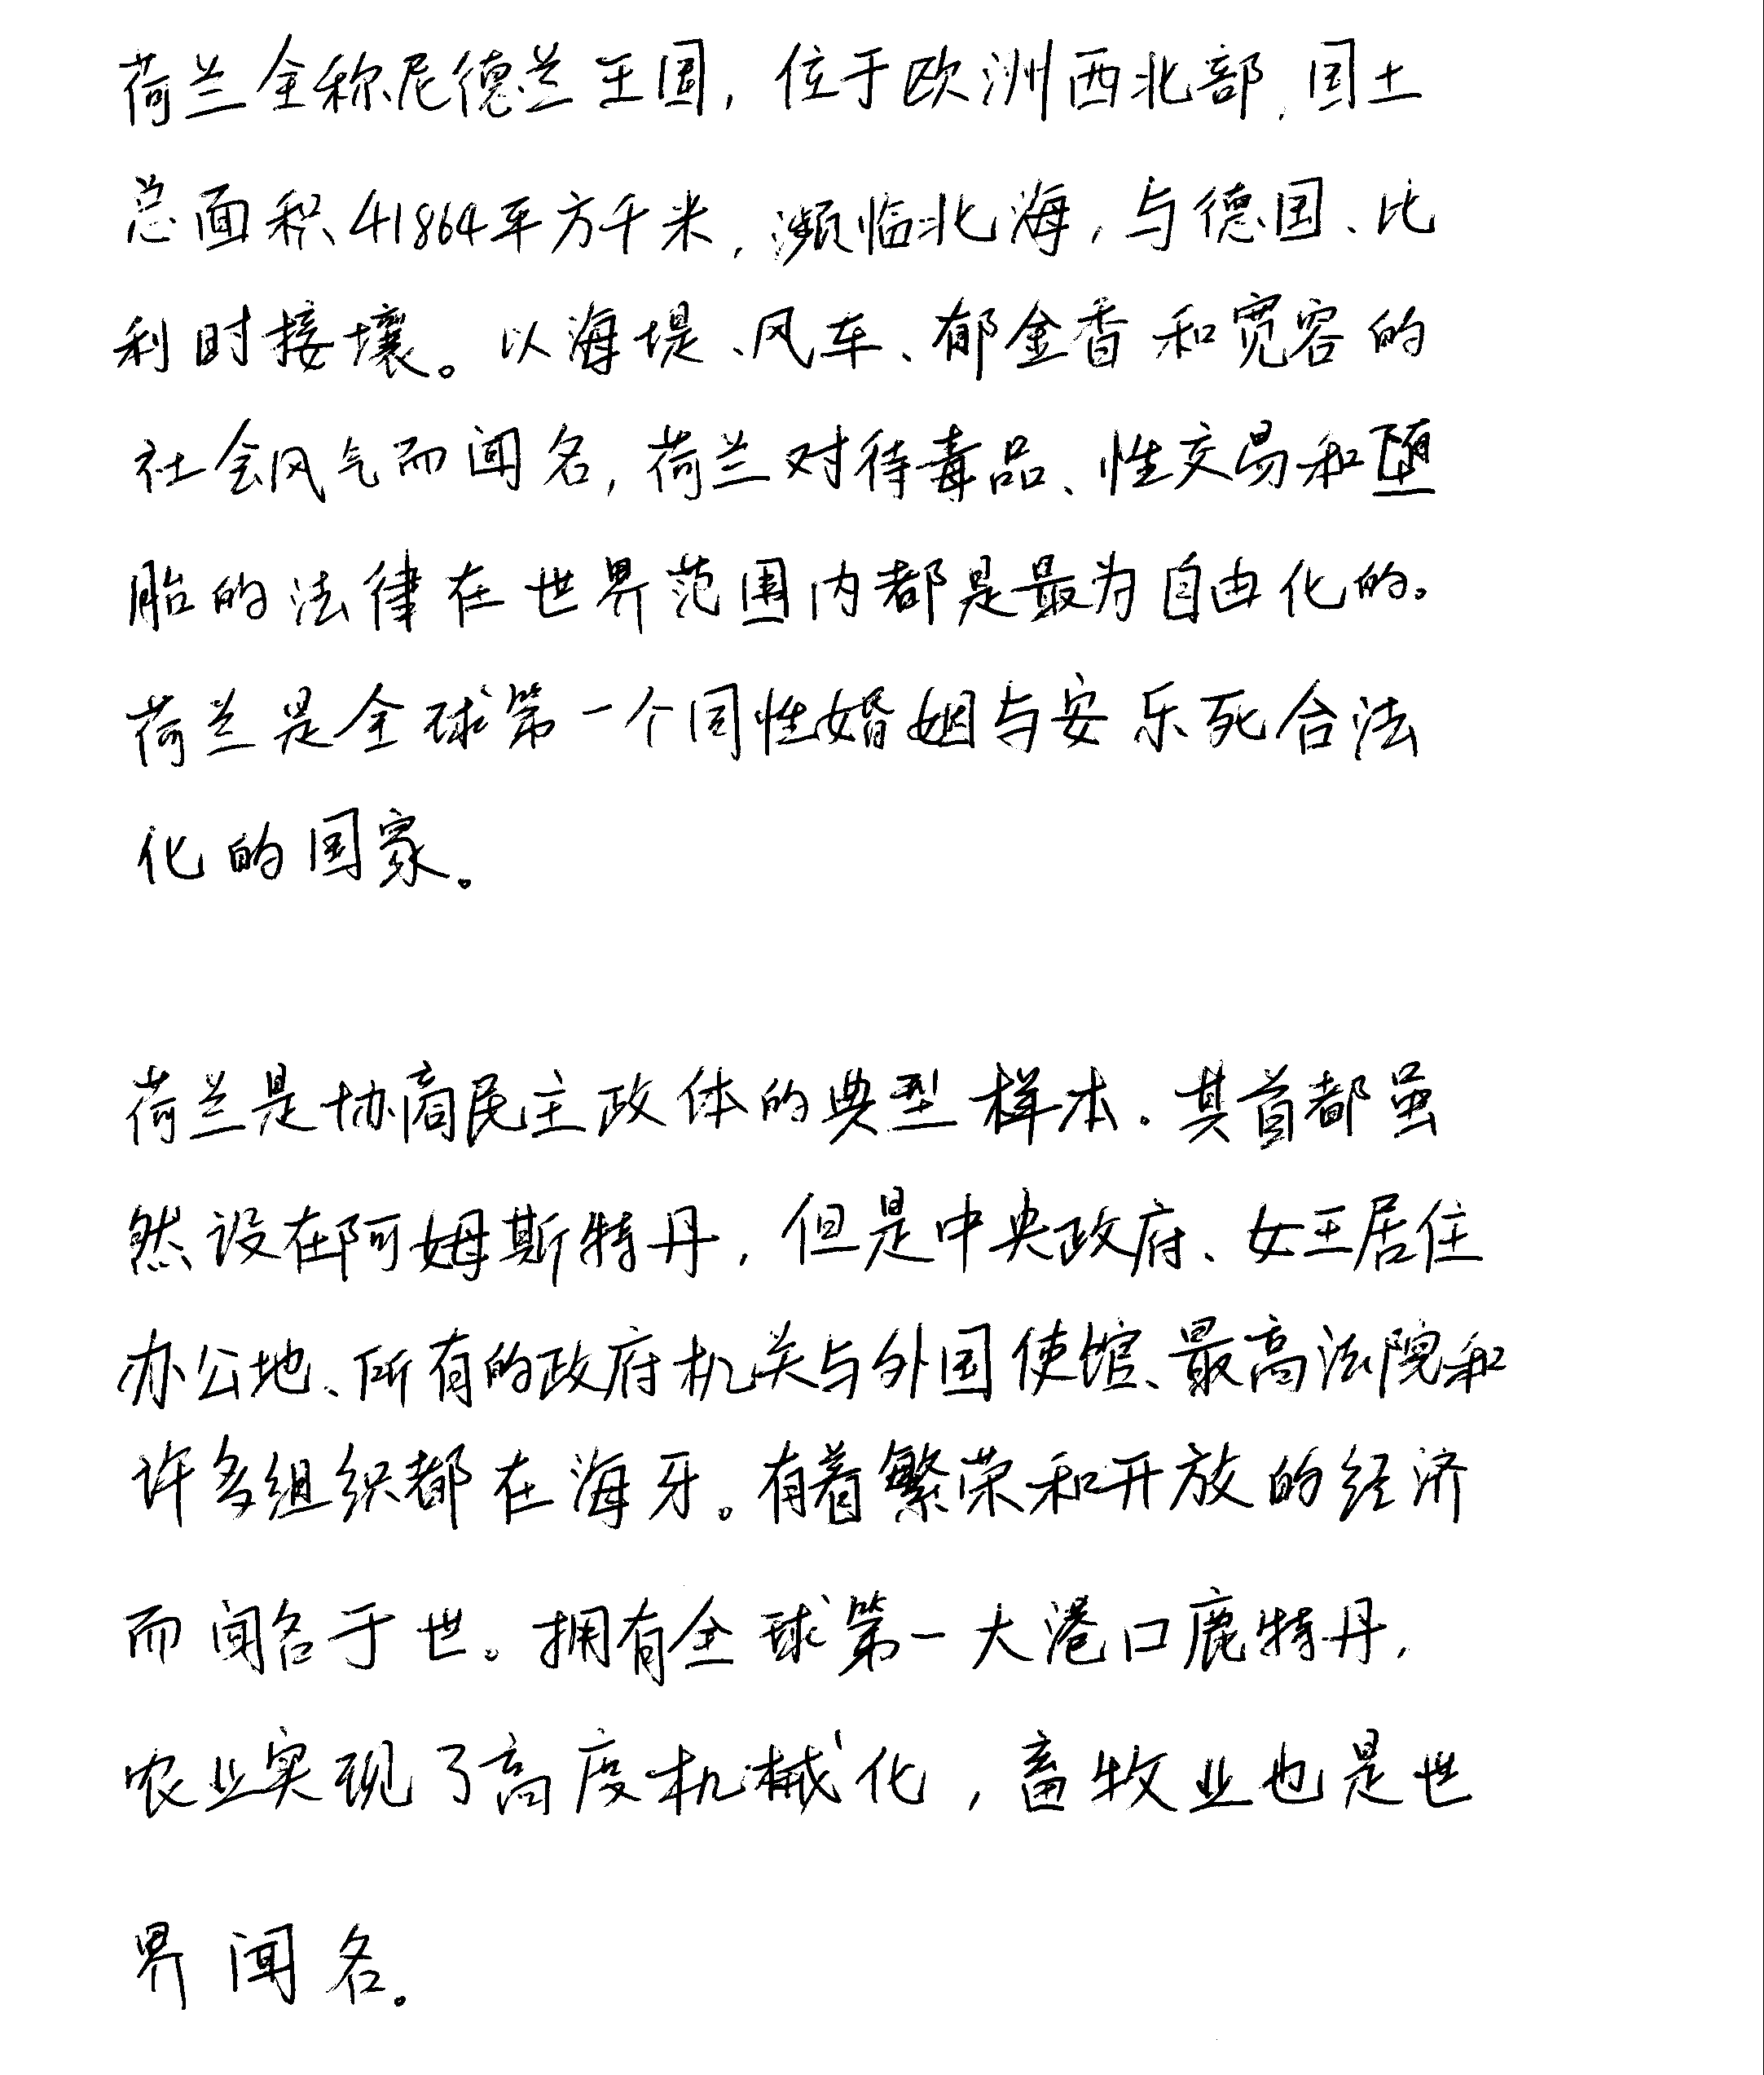 荷兰全称尼德兰王国，位于欧洲西北部，国土
总面积41864平方千米，濒临北海，与德国、比
利时接壤。以海堤、风车、郁金香和宽容的
社会风气而闻名，荷兰对待毒品、性交易和堕
胎的法律在世界范围内都是最为自由化的。
荷兰是全球第一个同性婚姻与安乐死合法
化的国家。
荷兰是协商民主政体的典型样本。其首都虽
然设在阿姆斯特丹，但是中央政府、女王居住
办公地、所有的政府机关与外国使馆、最高法院和
许多组织都在海牙。有着繁荣和开放的经济
而闻名于世。拥有全球第一大港口鹿特丹，
农业实现了高度机械化，畜牧业也是世
界闻名。